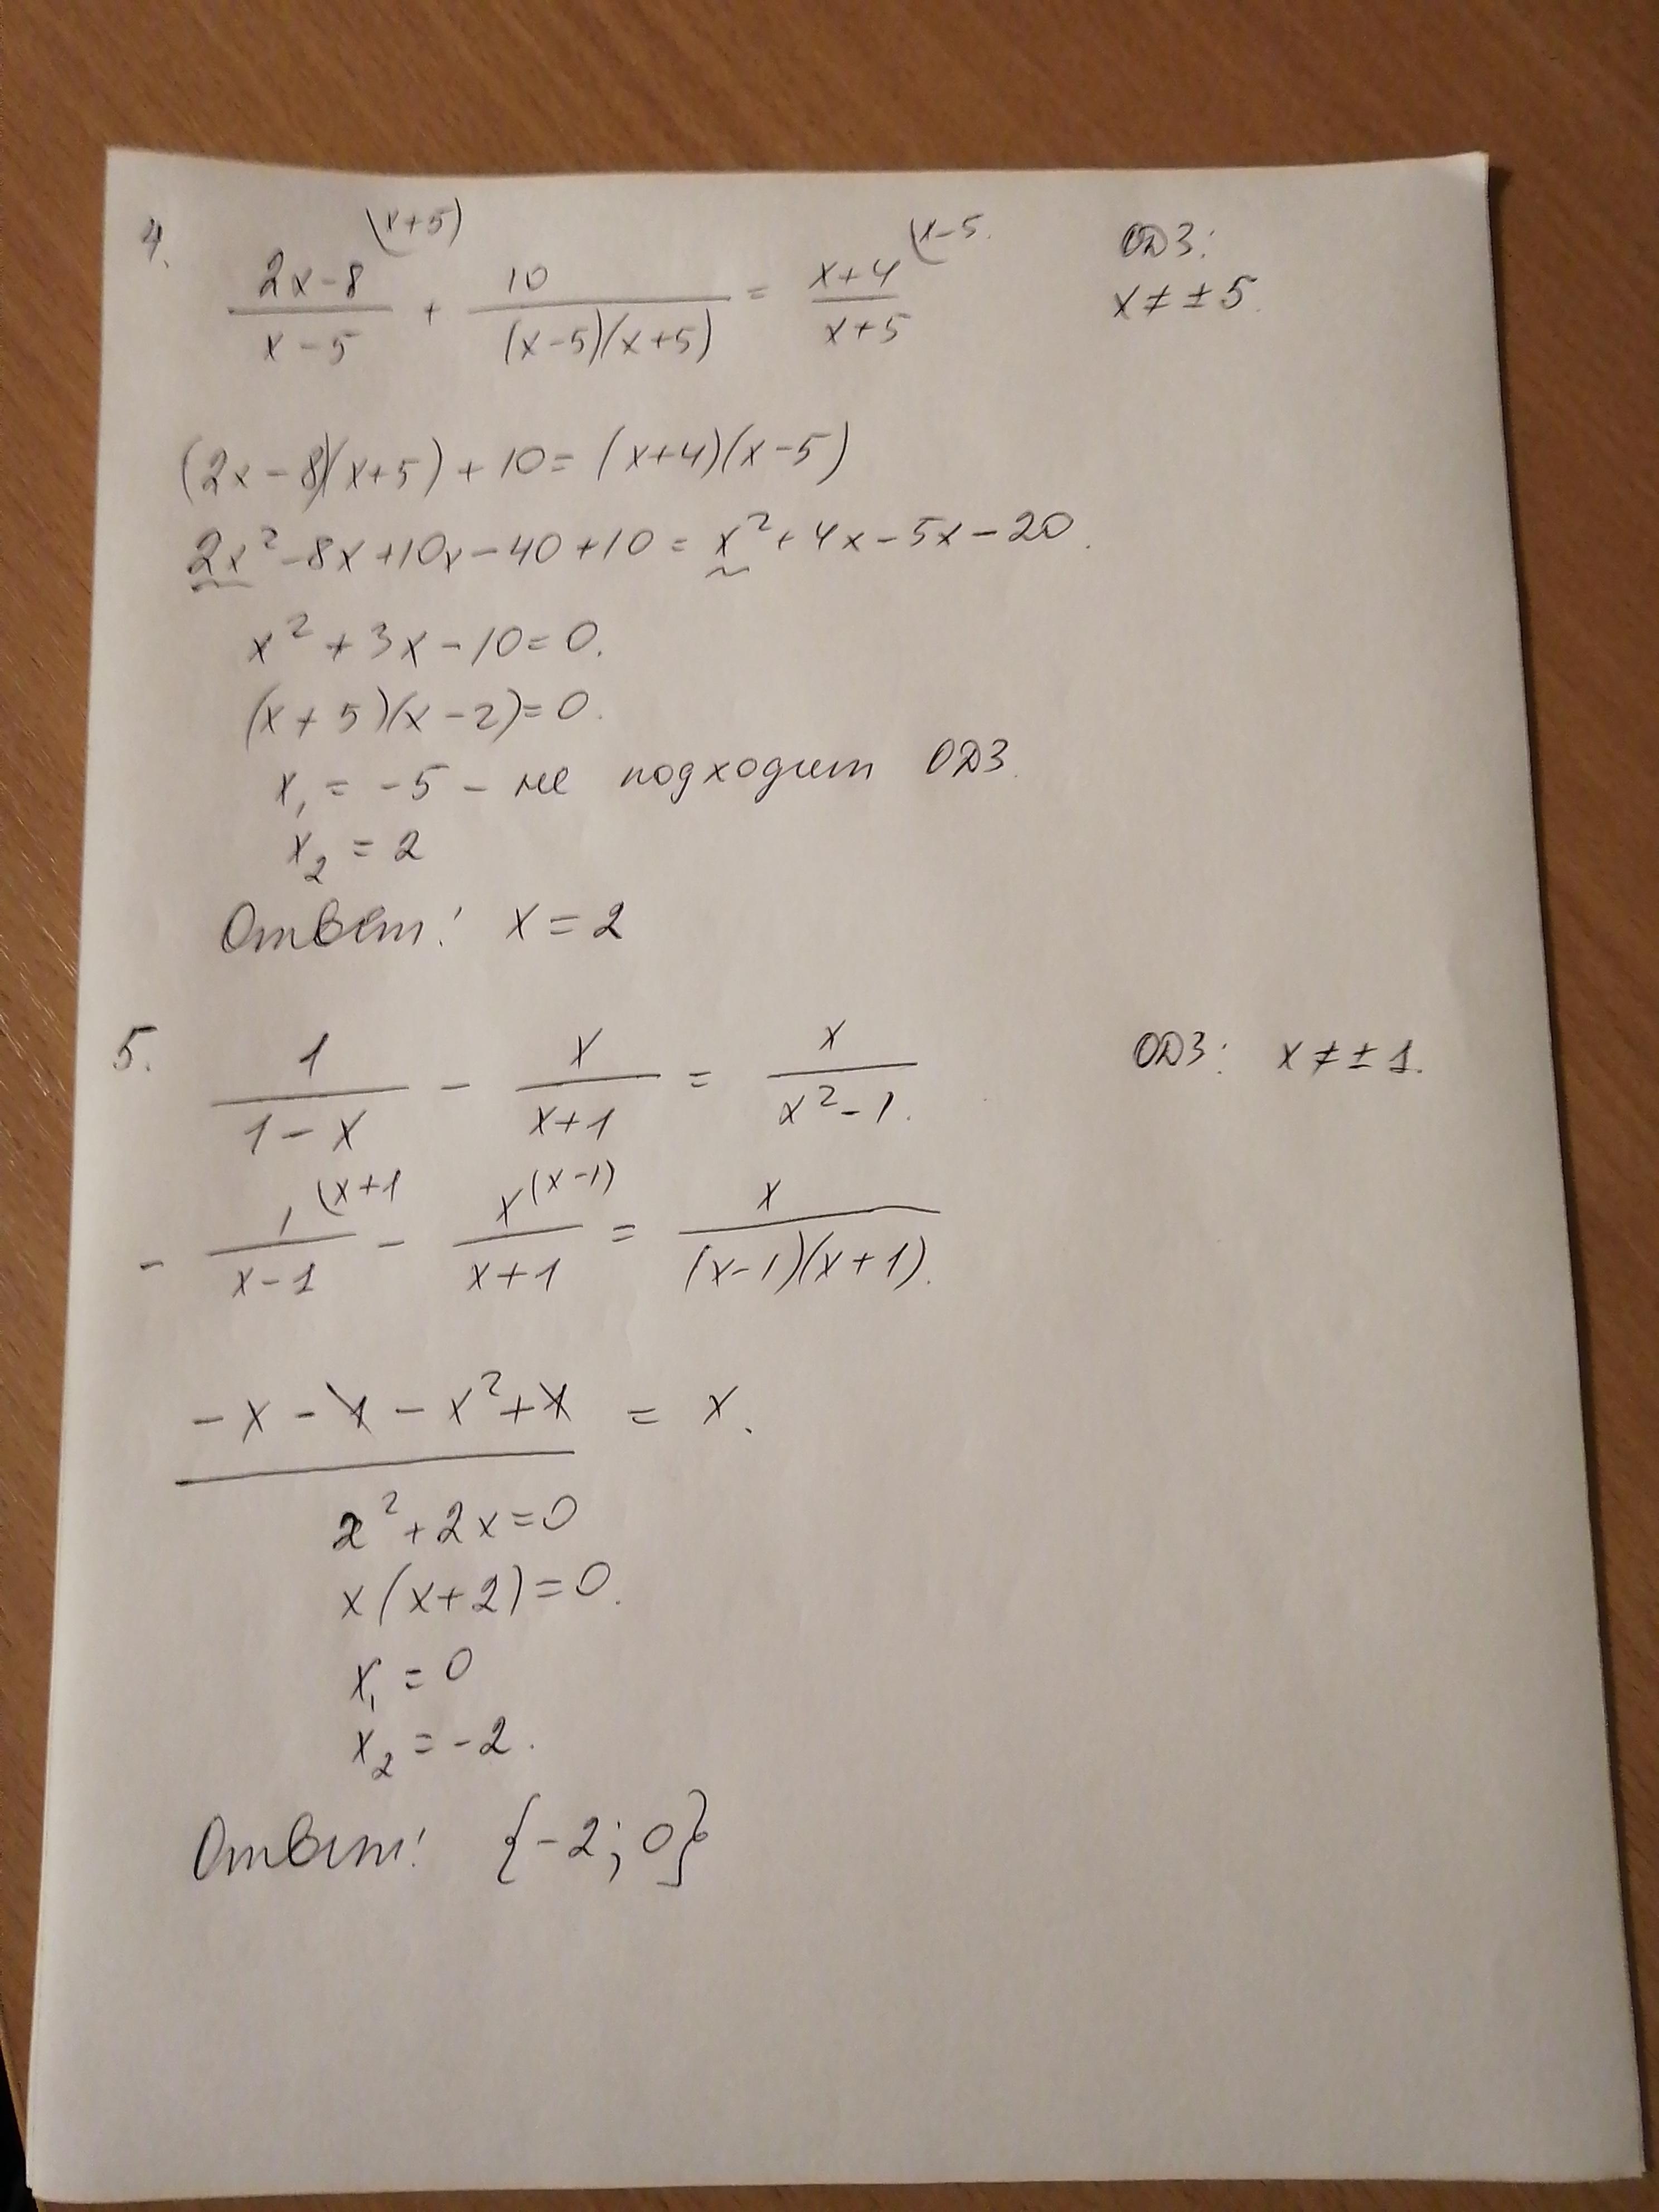 4. (2x-8)/(x-5) (x+5) + 10/((x-5)(x+5)) = (x+4)/(x+5) (x-5. ОДЗ:
x ≠ ± 5.
(2x-8)(x+5)+10=(x+4)(x-5)
2x²-8x+10x-40+10=x²+4x-5x-20.
x²+3x-10=0.
(x+5)(x-2)=0.
x₁=-5 - не подходит ОДЗ.
x₂=2
Ответ: x=2
5. 1/(1-x) - x/(x+1) = x/(x²-1). ОДЗ: x ≠ ± 1.
- 1/(x-1) (x+1 - x/(x+1) (x-1) = x/((x-1)(x+1)).
-x-x-x²+x = x.
x²+2x=0
x(x+2)=0.
x₁=0
x₂=-2.
Ответ: {-2; 0}